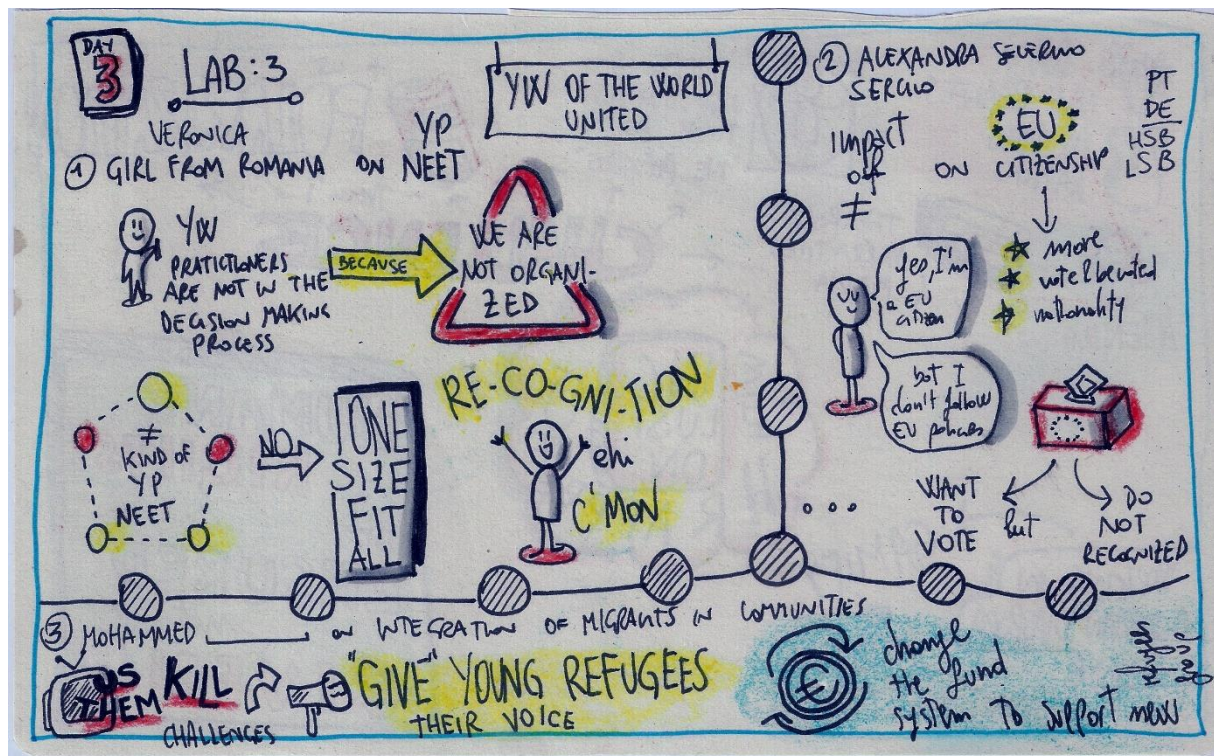 DAY
3
LAB:3
YW OF THE WORLD
UNITED
VERONICA
① GIRL FROM ROMANIA ON YP NEET
YW
PRATICTIONERS
ARE NOT IN THE
DECISION MAKING
PROCESS
BECAUSE
WE ARE
NOT ORGANI-
ZED
≠
KIND OF
YP
NEET
NO
ONE
SIZE
FIT
ALL
RE-CO-GNI-TION
ehi
C'MON
② ALEXANDRA SEVERINO
SERGIO
PT
DE
HSB
LSB
impact
of
≠
ON
EU
CITIZENSHIP
more
vote & be voted
nationality
yes, I'm
a EU
citizen
but I
don't follow
EU policies
...
WANT
TO
VOTE
but
DO
NOT
RECOGNIZED
③ MOHAMMED ON INTEGRATION OF MIGRANTS IN COMMUNITIES
US
THEM
KILL
CHALLENGES
"GIVE" YOUNG REFUGEES
THEIR VOICE
€
change
the fund
system to support new